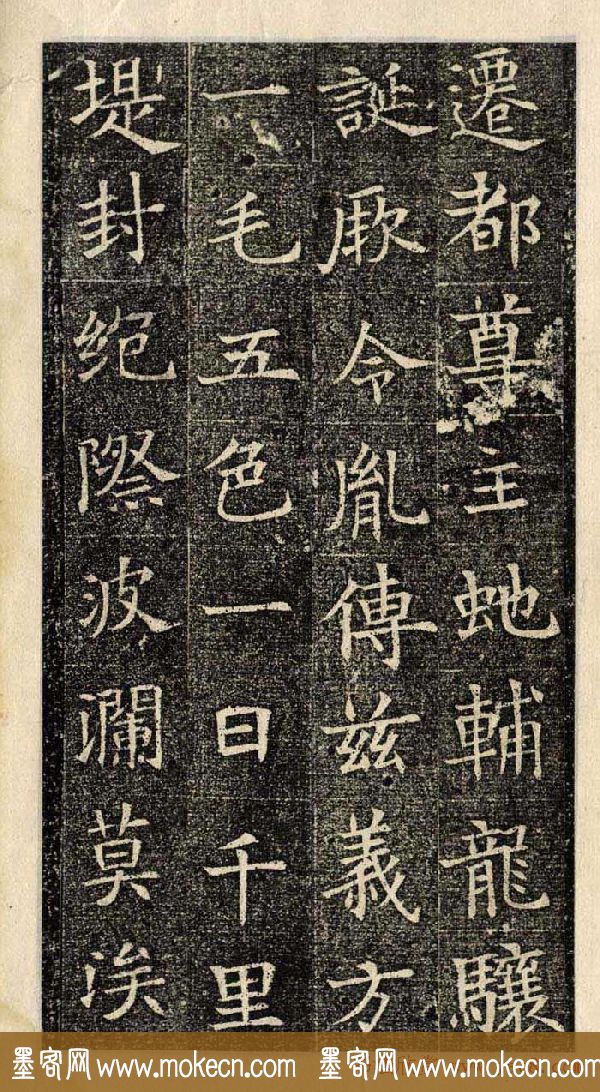 遷都尊主虵輔龍驤
誕厥令胤傳茲義方
一毛五色一日千里
堤封絕際波瀾莫涘
墨客网 www.mokecn.com 墨客网 www.mokecn.com